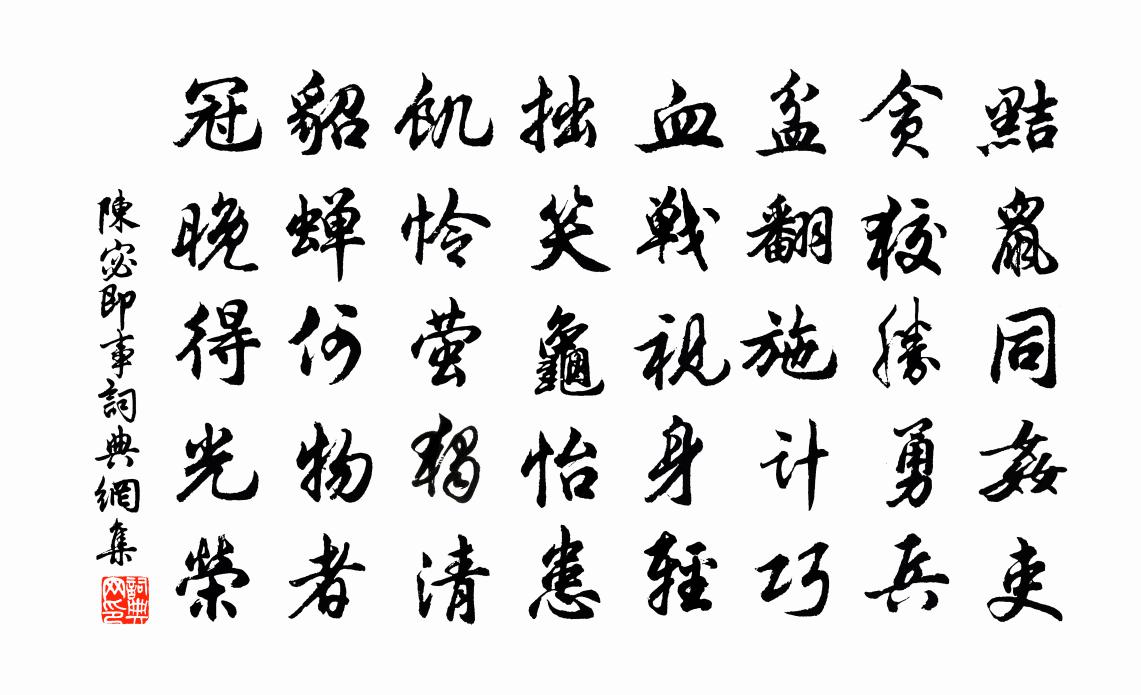 黠鼠同姦吏
贪狡勝勇兵
盆翻施计巧
血戦視身輕
拙笑龜怡患
飢怜萤獨清
貂蝉何物者
冠晚得光榮
陳宓即事詞典網集